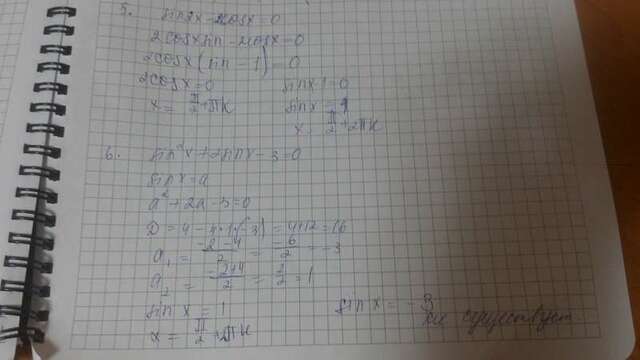 5. sin2x - 2cosx = 0
2cosx sin - 2cosx = 0
2cosx (sin - 1) = 0
2cosx = 0 sinx - 1 = 0
x = π/2 + πk sinx = 1
x = π/2 + 2πk
6. sin²x + 2sinx - 3 = 0
sinx = a
a² + 2a - 3 = 0
D = 4 - 4·1·(-3) = 4+12 = 16
a₁ = (-2-4)/2 = -6/2 = -3
a₂ = (-2+4)/2 = 2/2 = 1
sin x = 1 sin x = -3
x = π/2 + 2πk не существует